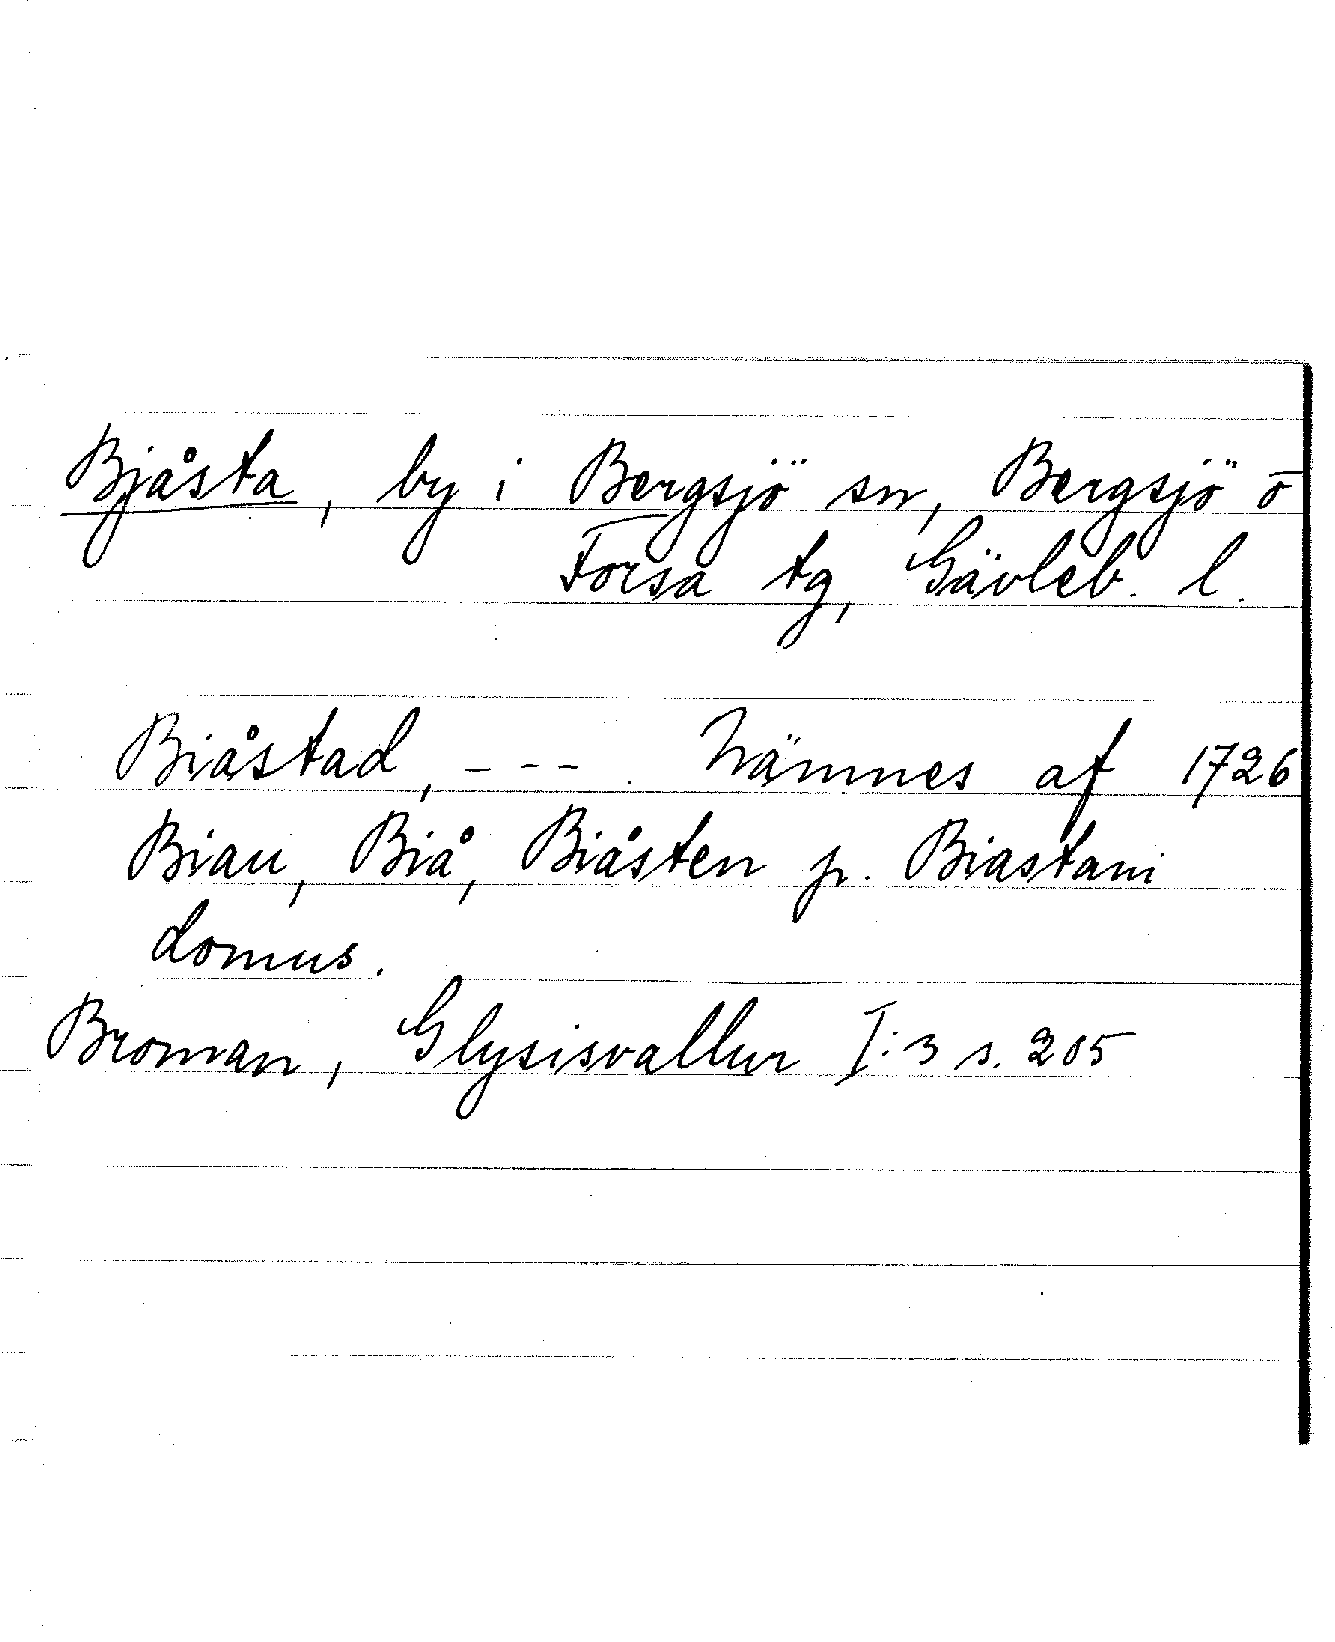 Bjåsta, by i Bergsjö sn, Bergsjö o
Forsa tg, Gävleb. l.
Biåstad, --- . Nämnes af 1726
Biau, Biå, Biåsten p. Biastani
domus.
Broman, Glysisvallur I:3 s. 205